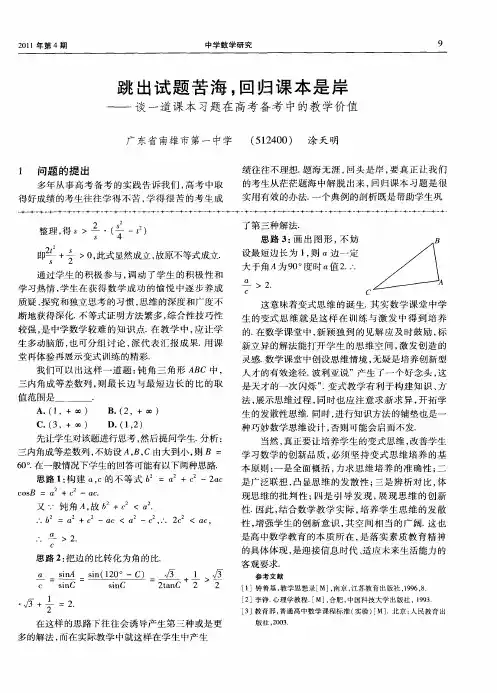 2011 年第 4 期
中学数学研究
9
跳出试题苦海,回归课本是岸
——谈一道课本习题在高考备考中的教学价值
广东省南雄市第一中学 (512400) 涂天明
1 问题的提出
多年从事高考备考的实践告诉我们,高考中取
得好成绩的考生往往学得不苦,学得很苦的考生成
绩往往不理想. 题海无涯,回头是岸,要真正让我们
的考生从茫茫题海中解脱出来,回归课本习题是很
实用有效的办法. 一个典例的剖析既是帮助学生巩
整理,得 s > 2/s · (s²/4 − t²)
即 2t²/s + s/2 > 0,此式显然成立,故原不等式成立.
通过学生的积极参与,调动了学生的积极性和
学习热情,学生在获得数学成功的愉悦中逐步养成
质疑、探究和独立思考的习惯,思维的深度和广度不
断地获得深化. 不等式证明方法繁多,综合性技巧性
较强,是中学数学较难的知识点. 在教学中,应让学
生多动脑筋,也可分组讨论,派代表汇报成果. 用课
堂再体验再展示变式训练的精彩.
我们可以出这样一道题:钝角三角形 ABC 中,
三内角成等差数列,则最长边与最短边长的比的取
值范围是______.
A. (1, + ∞) B. (2, + ∞)
C. (3, + ∞) D. (1,2)
先让学生对该题进行思考,然后提问学生. 分析:
三内角成等差数列,不妨设 A,B,C 由大到小,则 B =
60°. 在一般情况下学生的回答可能有以下两种思路.
思路 1:构建 a,c 的不等式 b² = a² + c² − 2ac
cosB = a² + c² − ac.
又∵ 钝角 A,故 b² + c² < a².
∴ b² = a² + c² − ac < a² − c²,∴ 2c² < ac,
∴ a/c > 2.
思路 2:把边的比转化为角的比.
a/c = sinA/sinC = sin(120° − C)/sinC = √3/2tanC + 1/2 > √3/2
· √3 + 1/2 = 2.
在这样的思路下往往会诱导产生第三种或是更
多的解法,而在实际教学中就这样在学生中产生
了第三种解法.
思路 3:画出图形,不妨
设最短边长为 1,则 a 边一定
大于角 A 为 90° 度时 a 值 2. ∴
a/c > 2.
B
A
C
这意味着变式思维的诞生. 其实数学课堂中学
生的变式思维就是这样在训练与激发中得到培养
的. 在数学课堂中,新颖独到的见解应及时鼓励,标
新立异的解法能打开学生的思维空间,激发创造的
灵感. 数学课堂中创设思维情境,无疑是培养创新型
人才的有效途径. 波利亚说“产生了一个好念头,这
是天才的一次闪烁”. 变式教学有利于构建知识、方
法,展示思维过程,同时也应注意求新求异,开拓学
生的发散性思维. 同时,进行知识方法的铺垫也是一
种巧妙数学思维设计,否则可能会启而不发.
当然,真正要让培养学生的变式思维,改善学生
学习数学的创新品质,必须坚持变式思维培养的基
本原则:一是全面概括,力求思维培养的准确性;二
是广泛联想,凸显思维的发散性;三是辨析对比,体
现思维的批判性;四是引导发现,展现思维的创新
性. 因此,结合数学教学实际,培养学生思维的发散
性,增强学生的创新意识,其空间相当的广阔. 这也
是高中数学教育的本质所在,是落实素质教育精神
的具体体现,是迎接信息时代、适应未来生活能力的
客观要求.
参考文献
[1] 钟善基,数学思想录[M],南京,江苏教育出版社,1996,8.
[2] 李铮. 心理学教程. [M],合肥,中国科技大学出版社, 1993.
[3] 教育部,普通高中数学课程标准(实验)[M]. 北京:人民教育出
版社,2003.